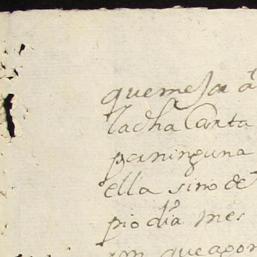 que me ha d
la dha Carta
por ninguna
ella sino de
pio dia mes
que apor